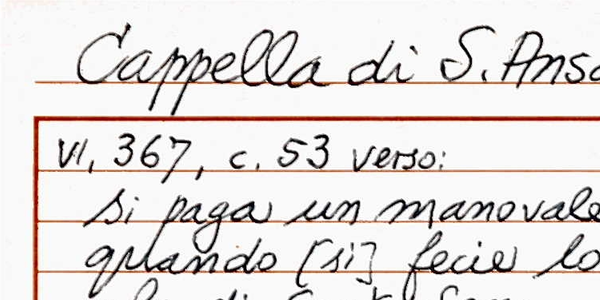 Cappella di S. Ans
VI, 367, c. 53 verso:
si paga un manovale
quando [si] fecie lo
di